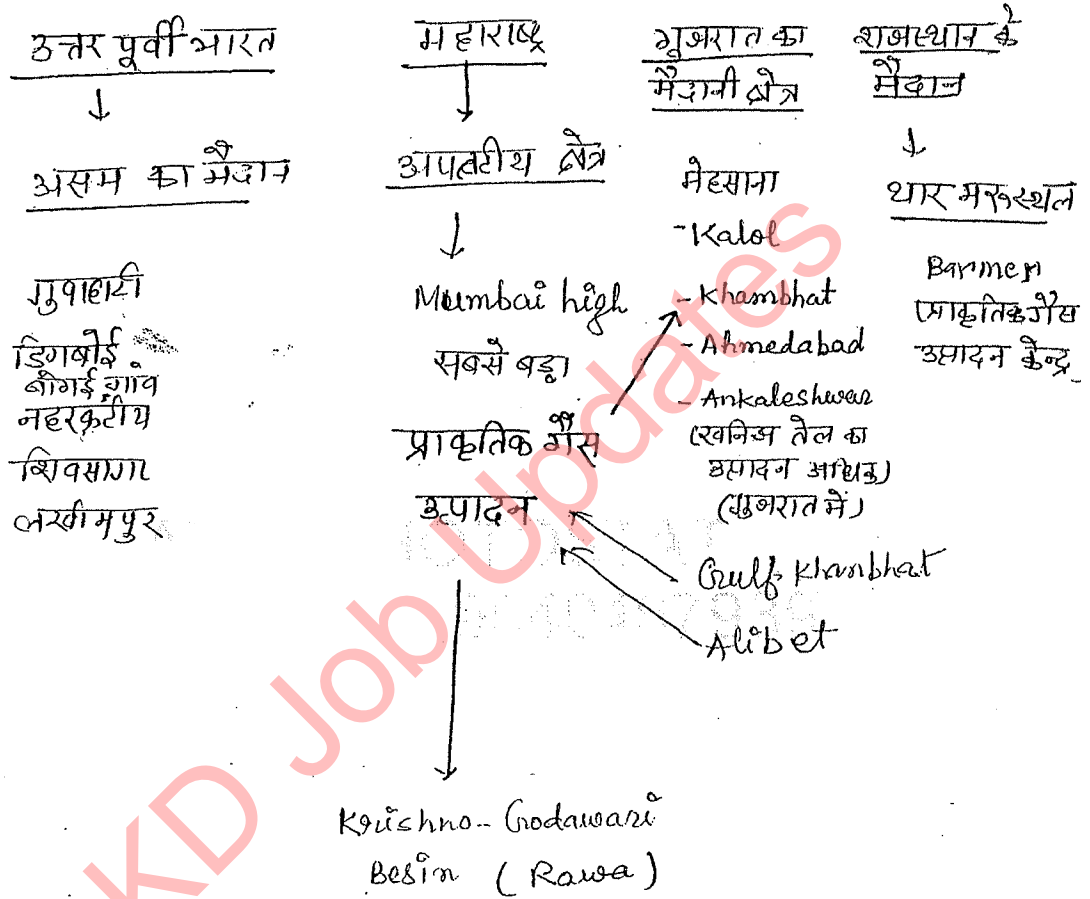 उत्तर पूर्वी भारत
↓
असम का मैदान
गुवाहाटी
डिगबोई
बोंगई गांव
नहरकटीय
शिवसागर
लखीमपुर
महाराष्ट्र
↓
अपतटीय क्षेत्र
↓
Mumbai high
सबसे बड़ा
प्राकृतिक गैस
उत्पादन
Krishno-Godawari
Besin (Rawa)
गुजरात का
मैदानी क्षेत्र
मेहसाना
-Kalol
- Khambhat
- Ahmedabad
- Ankaleshwar
(खनिज तेल का
उत्पादन अधिक)
(गुजरात में)
Gulf Khambhat
Alibet
राजस्थान के
मैदान
↓
थार मरुस्थल
Barmer
(प्राकृतिक गैस
उत्पादन केन्द्र
KD Job Updates